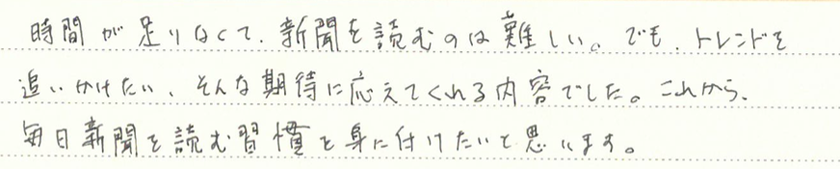 時間が足りなくて、新聞を読むのは難しい。でも、トレンドを
追いかけたい、そんな期待に応えてくれる内容でした。これから、
毎日新聞を読む習慣を身に付けたいと思います。